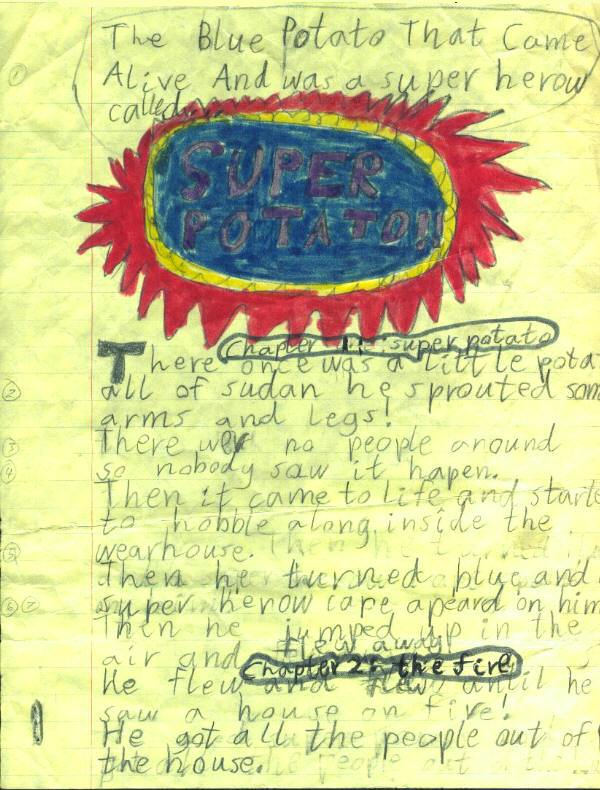 The Blue Potato That Came
Alive And was a super herow
called
SUPER
POTATO!!
Chapter 1: super potato
There once was a little pota
all of sudan he sprouted som
arms and legs!
There wer no people around
so nobody saw it hapen.
Then it came to life and starte
to hobble along inside the
wearhouse.
Then he turned blue and
super herow cape apeard on him
Then he jumped up in the
air and flew away!
Chapter 2: the fire
He flew and flew until he
saw a house on fire!
He got all the people out of
the house.